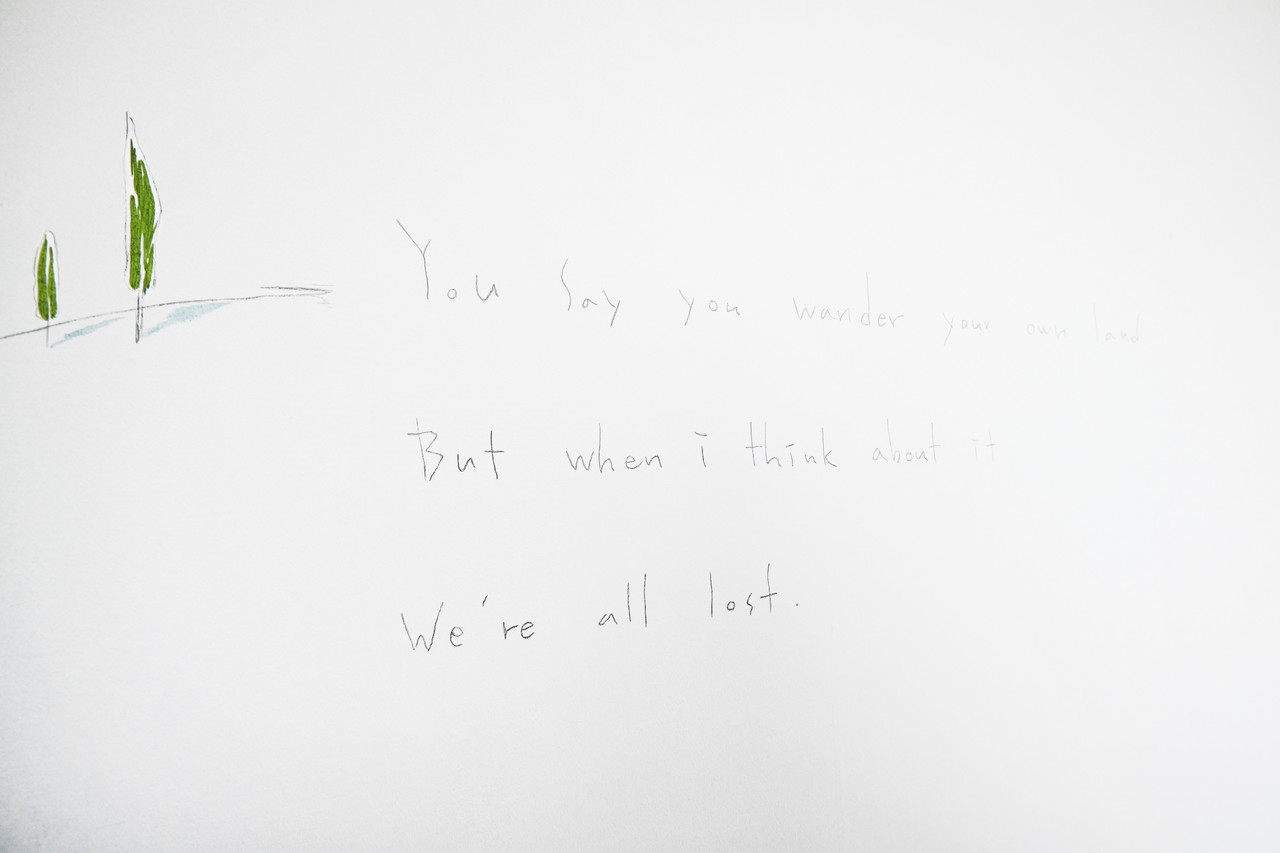 You Say you wander your own land
But when i think about it
We're all lost.